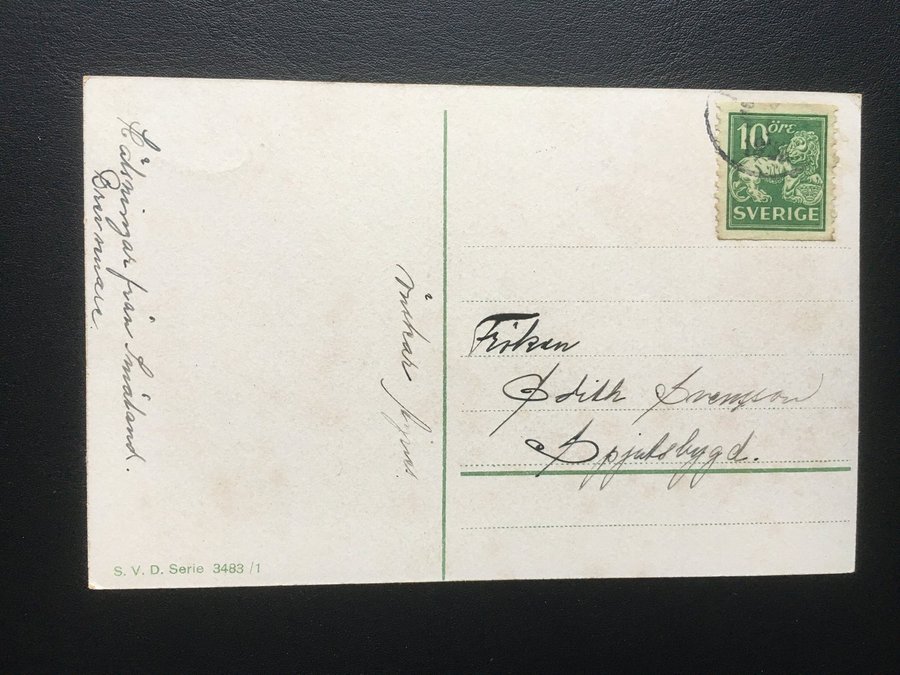 Hälsningar från Småland.
önskar
10 öre
SVERIGE
Fröken
Edith Svensson
Spjutsbygd.
S. V. D. Serie 3483/1